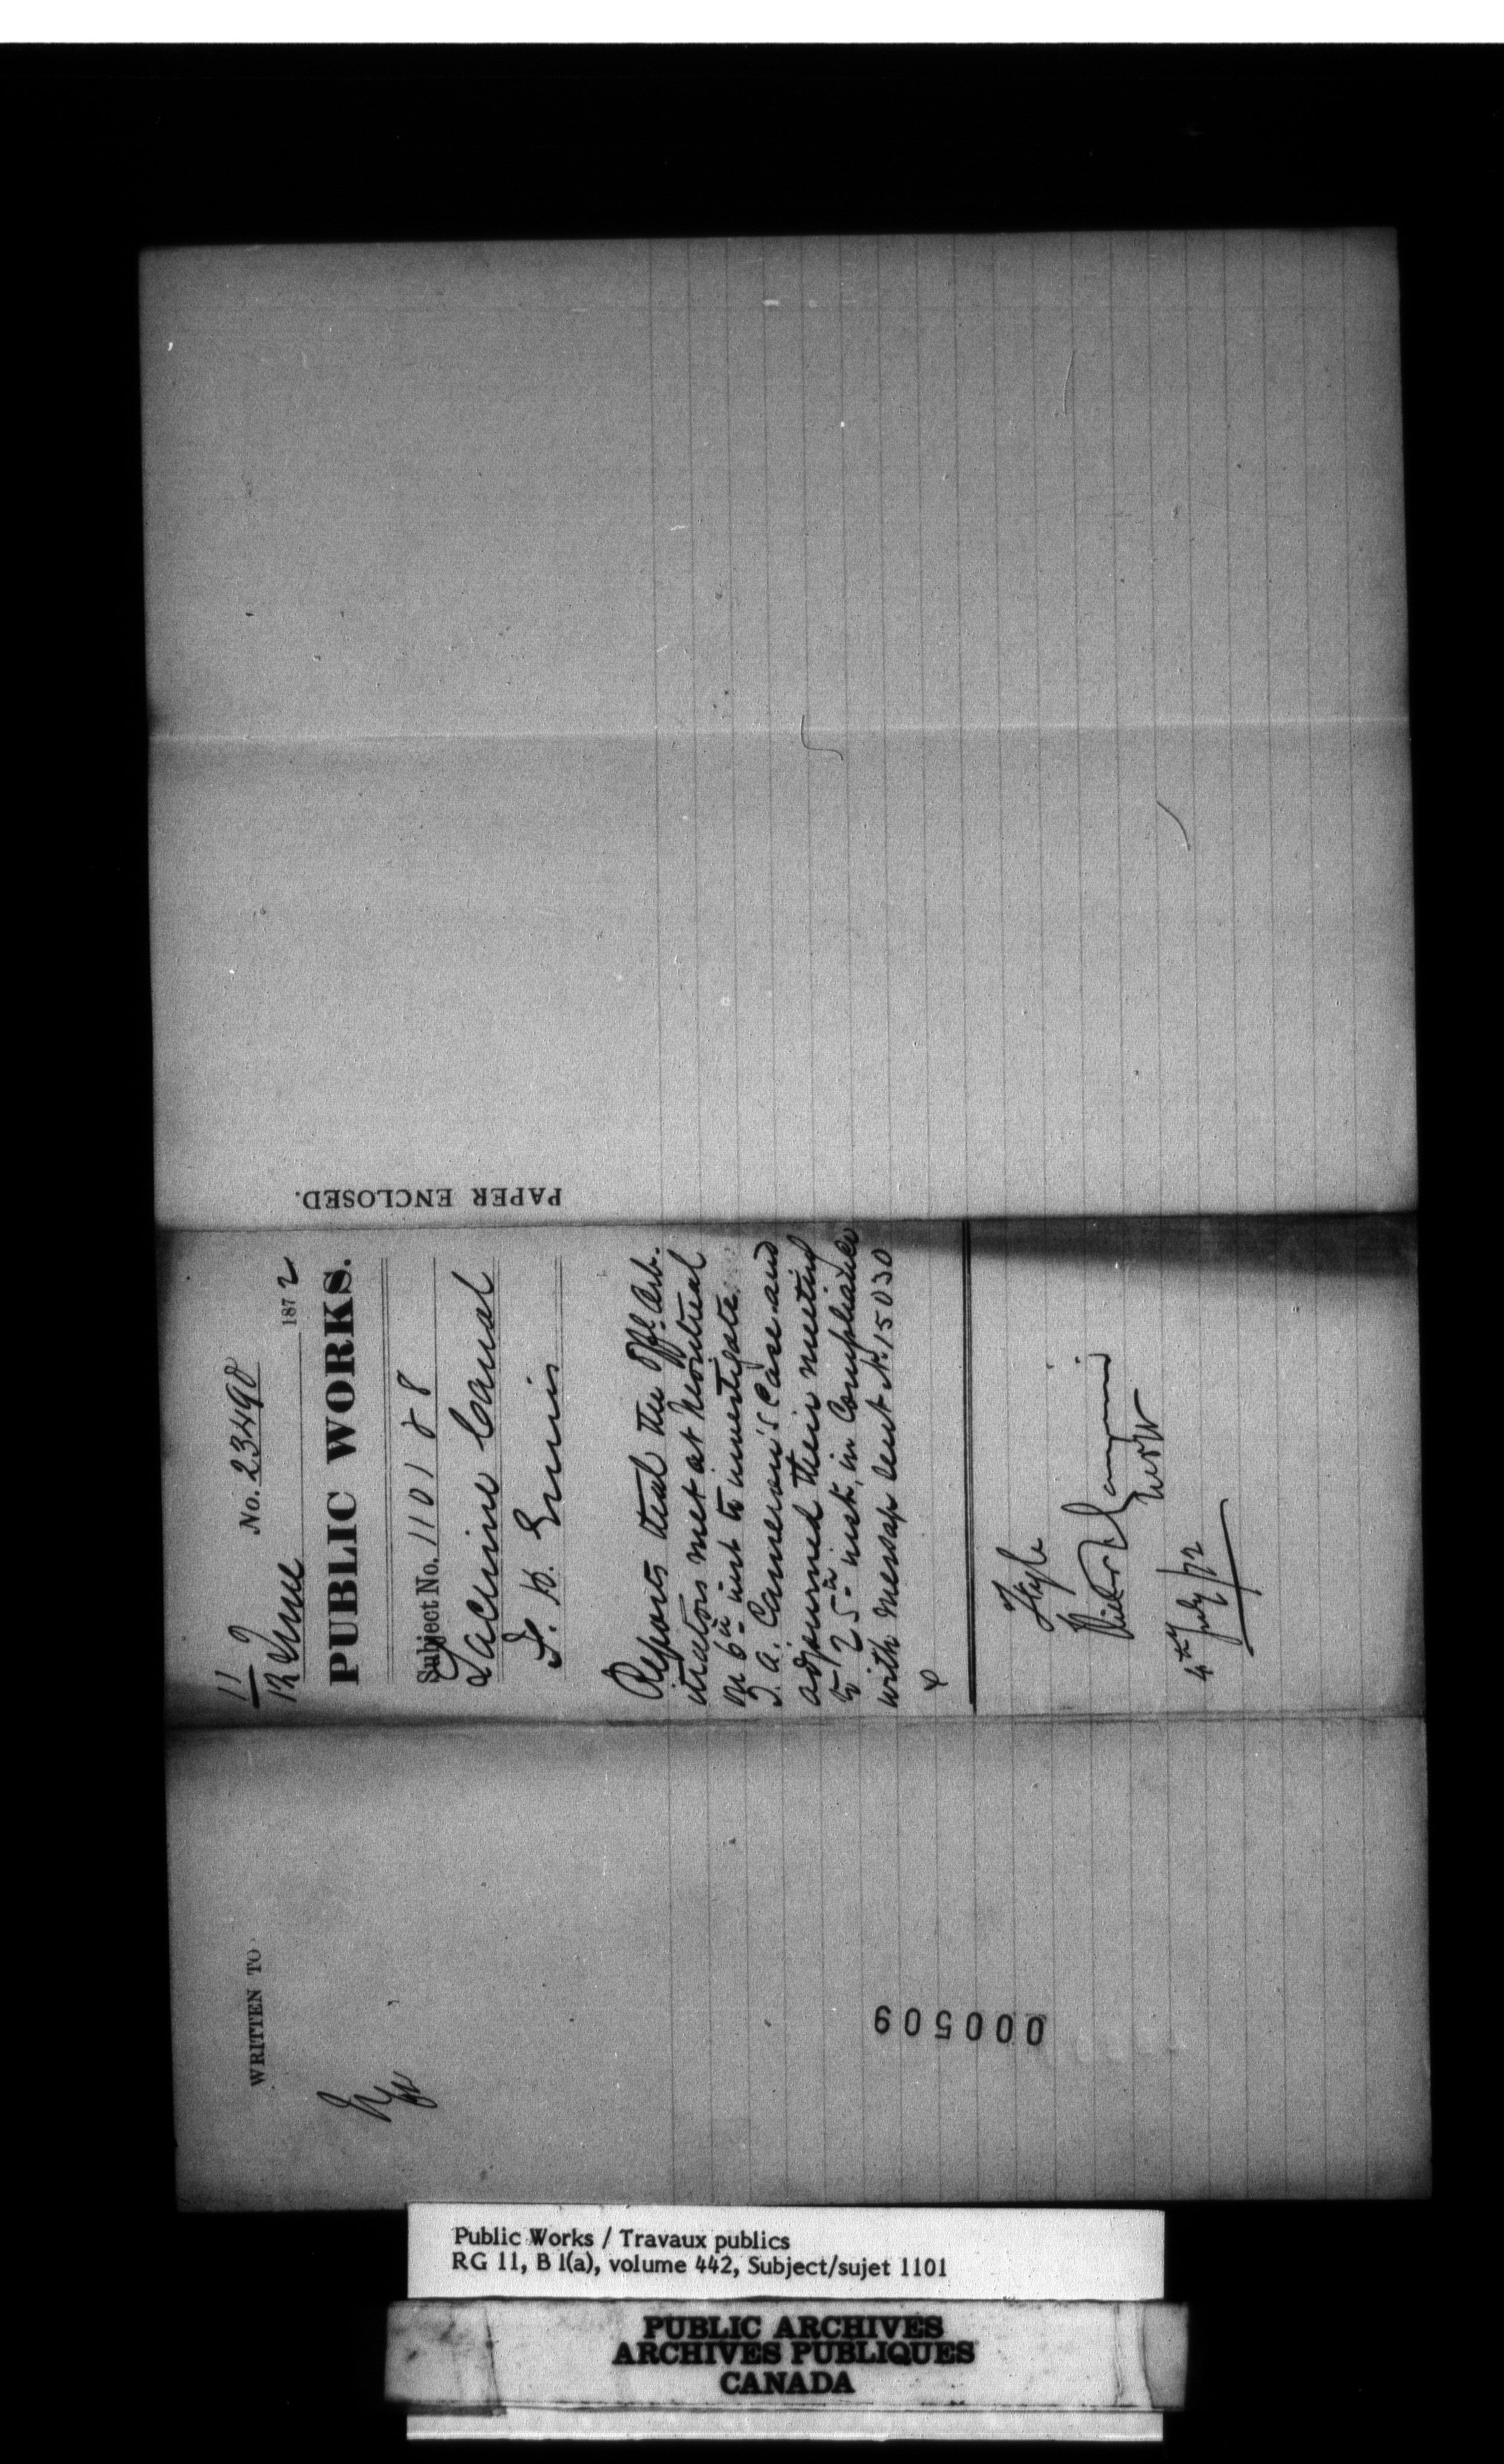 No. 23490
11
12 June 1872
PUBLIC WORKS.
Subject No. 1101 & 8
Lachine Canal
F. B. Ennis
Reports that the Offl. Arb-
itrators met at Montreal
on 6th inst to investigate
J. A. Cameron's Case and
adjourned their meeting
to 25th inst, in Compliance
with Message sent No. 15030
Fyle
4th July /72
PAPER ENCLOSED.
WRITTEN TO
000509
Public Works / Travaux publics
RG 11, B 1(a), volume 442, Subject/sujet 1101
PUBLIC ARCHIVES
ARCHIVES PUBLIQUES
CANADA